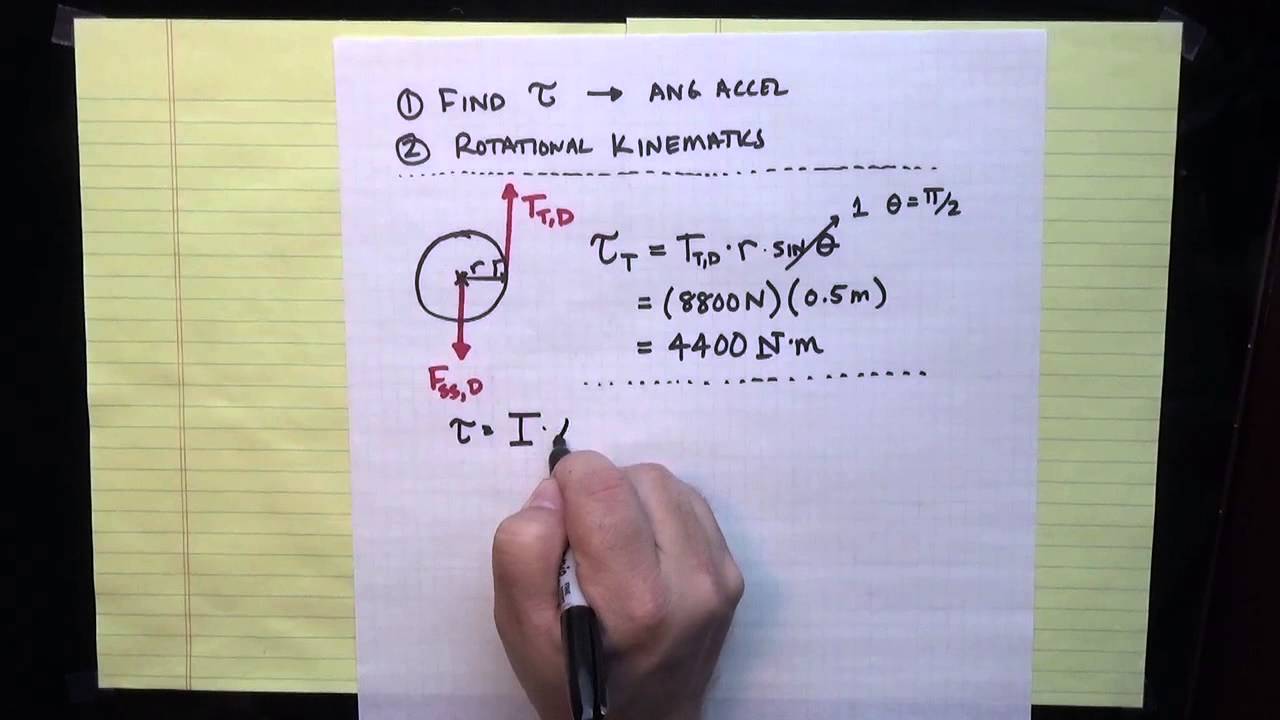 ① FIND τ → ANG ACCEL
② ROTATIONAL KINEMATICS
T_T,D
1 θ=π/2
r
τ_T = T_T,D · r · SIN θ
= (8800N)(0.5m)
= 4400 N·m
F_SS,D
τ = I ·